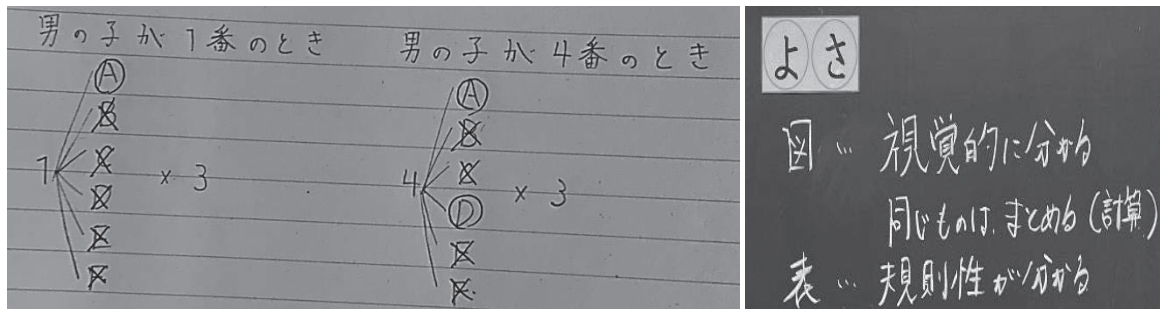 男の子が1番のとき
A
B
C
1
× 3
D
E
F
男の子が4番のとき
A
B
C
4
× 3
D
E
F
よさ
図… 視覚的に分かる
同じものは、まとめる(計算)
表… 規則性が分かる